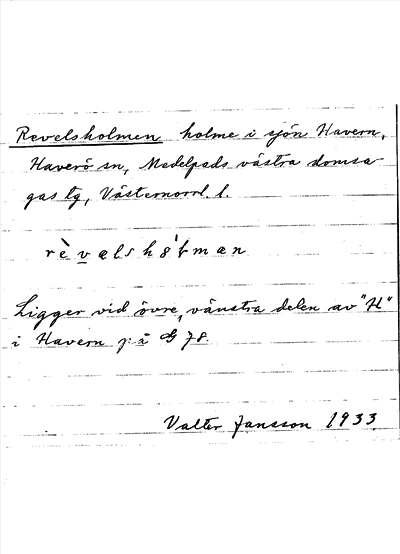 Revelsholmen holme i sjön Havern,
Haverö sn, Medelpads västra domsa
gas tg, Västernorrl. l.
Ligger vid övre, vänstra delen av "H"
i Havern på 78.
Valter Jansson 1933